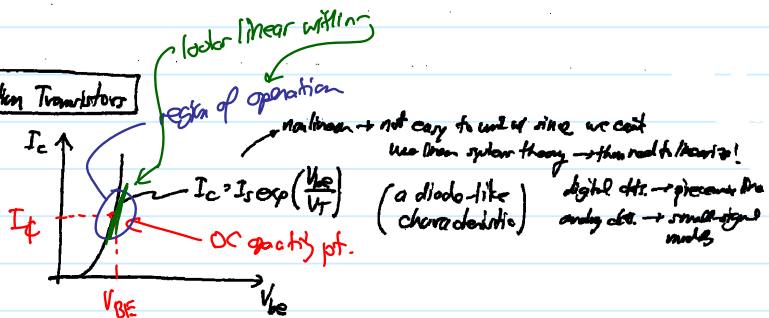 looks linear within
Transistors
region of operation
nonlinear → not easy to work w/ since we can't
use linear system theory → then need to linearize!
I_c
I_c = I_s exp(V_be/V_T)
(a diode-like characteristic)
digital ckts. → piecewise line
analog ckts. → small-signal
models
I_C
DC operating pt.
V_BE
V_be